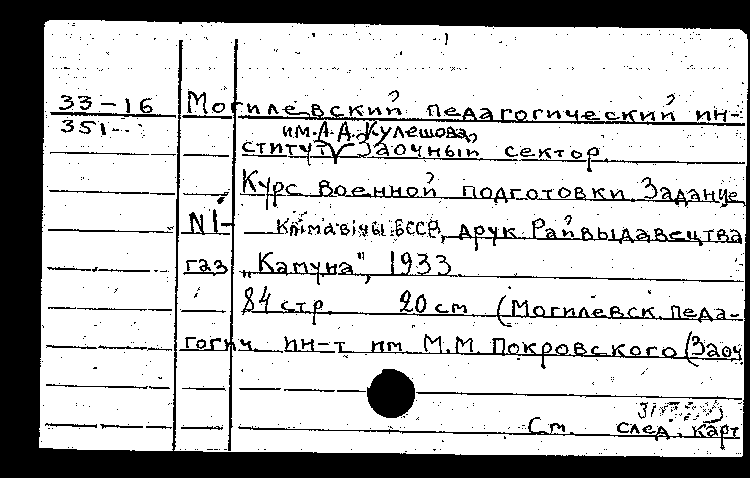 33-16 Могилевский педагогический ин-
351-- им. А. А. Кулешова,
ститут Заочный сектор.
Курс военной подготовки. Задание
N1- Клiмавiчы БССР, друк Райвыдавецтва
газ „Камуна", 1933
84 стр. 20 см (Могилевск. педа-
гогич. ин-т им М.М. Покровского (Заоч
См. след. карт